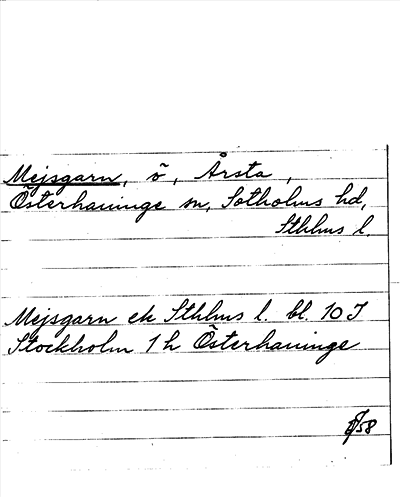 Mejsgarn, ö, Årsta,
Österhaninge sn, Sotholms hd,
Sthlms l.
Mejsgarn ek Sthlms l. bl. 10 I
Stockholm 1 h Österhaninge
/58